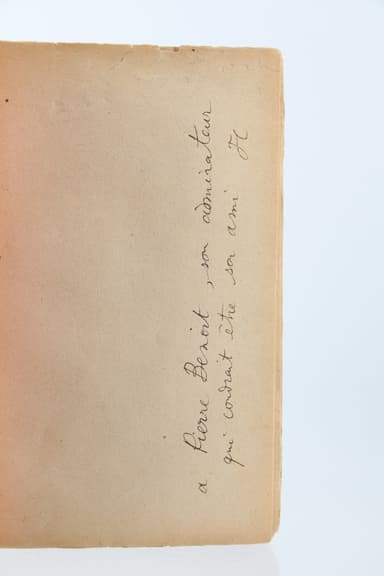 a Pierre Benoit, son admirateur
qui voudrait être son ami JC